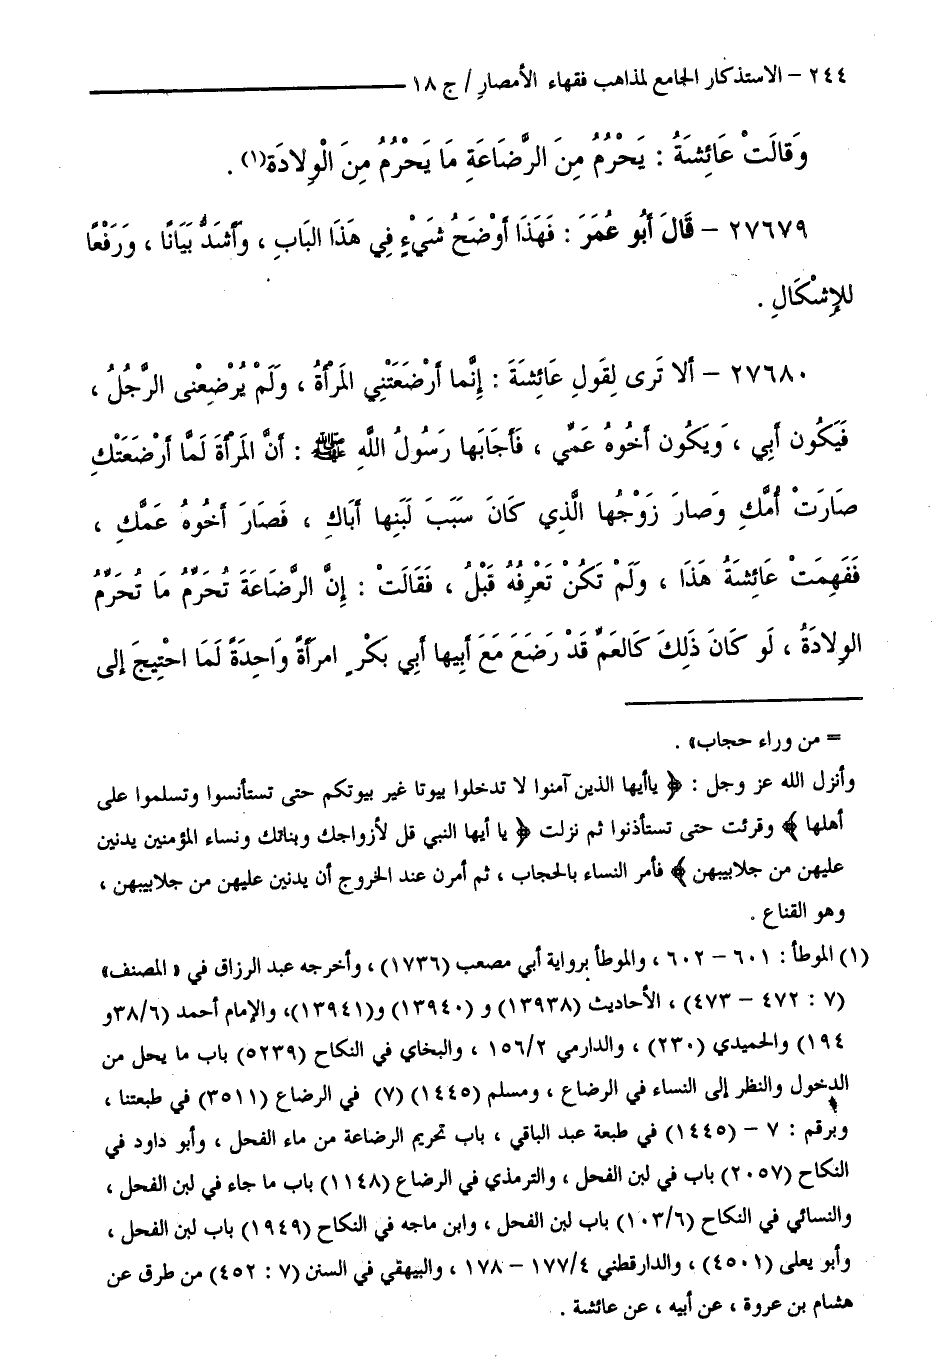 ٢٤٤ – الاستذكار الجامع لمذاهب فقهاء الأمصار / ج ١٨
وَقَالَتْ عَائِشَةُ : يَحْرُمُ مِنَ الرَّضَاعَةِ مَا يَحْرُمُ مِنَ الْوِلَادَةِ(١) .
٢٧٦٧٩ – قَالَ أَبُو عُمَرَ : فَهَذَا أَوْضَحُ شَيْءٍ فِي هَذَا البَابِ ، وَأَشَدُّ بَيَانًا ، وَرَفْعًا
للإِشْكَالِ .
٢٧٦٨٠ – أَلا تَرى لِقَولِ عَائِشَةَ : إِنَّما أَرْضَعَتْنِي المَرْأَةُ ، وَلَمْ يُرْضِعْنى الرَّجُلُ ،
فَيَكُون أَبِي ، وَيَكُون أَخُوهُ عَمِّي ، فَأَجَابَها رَسُولُ اللَّهِ ﷺ : أَنَّ المَرْأَةَ لَمَّا أَرْضَعَتْكِ
صَارَتْ أُمَّكِ وَصَارَ زَوْجُها الَّذِي كَانَ سَبَبَ لَبَنِها أَبَاكِ ، فَصَارَ أَخُوهُ عَمَّكِ ،
فَفَهِمَتْ عَائِشَةُ هَذَا ، وَلَمْ تَكُنْ تَعْرِفُهُ قَبْلُ ، فَقَالَتْ : إِنَّ الرَّضَاعَةَ تُحَرِّمُ مَا تُحَرِّمُ
الوِلادَةُ ، لَو كَانَ ذَلِكَ كَالعَمِّ قَدْ رَضَعَ مَعَ أَبِيها أَبِي بَكْرٍ امرَأَةً وَاحِدَةً لَمَا احْتِيجَ إِلى
= من وراء حجاب» .
وأنزل الله عز وجل : ﴿ ياأيها الذين آمنوا لا تدخلوا بيوتا غير بيوتكم حتى تستأنسوا وتسلموا على
أهلها ﴾ وقرئت حتى تستأذنوا ثم نزلت ﴿ يا أيها النبي قل لأزواجك وبناتك ونساء المؤمنين يدنين
عليهن من جلابيبهن ﴾ فأمر النساء بالحجاب ، ثم أمرن عند الخروج أن يدنين عليهن من جلابيبهن ،
وهو القناع .
(١) الموطأ : ٦٠١ – ٦٠٢ ، والموطأ برواية أبي مصعب (١٧٣٦) ، وأخرجه عبد الرزاق في « المصنف»
(٧ : ٤٧٢ – ٤٧٣) ، الأحاديث (١٣٩٣٨) و (١٣٩٤٠) و(١٣٩٤١)، والإمام أحمد (٣٨/٦و
١٩٤) والحميدي (٢٣٠) ، والدارمي ١٥٦/٢ ، والبخاي في النكاح (٥٢٣٩) باب ما يحل من
الدخول والنظر إلى النساء في الرضاع ، ومسلم (١٤٤٥) (٧) في الرضاع (٣٥١١) في طبعتنا ،
وبرقم : ٧ – (١٤٤٥) في طبعة عبد الباقي ، باب تحريم الرضاعة من ماء الفحل ، وأبو داود في
النكاح (٢٠٥٧) باب في لبن الفحل ، والترمذي في الرضاع (١١٤٨) باب ما جاء في لبن الفحل ،
والنسائي في النكاح (١٠٣/٦) باب لبن الفحل ، وابن ماجه في النكاح (١٩٤٩) باب لبن الفحل ،
وأبو يعلى (٤٥٠١) ، والدارقطني ١٧٧/٤ – ١٧٨ ، والبيهقي في السنن (٧ : ٤٥٢) من طرق عن
هشام بن عروة ، عن أبيه ، عن عائشة .